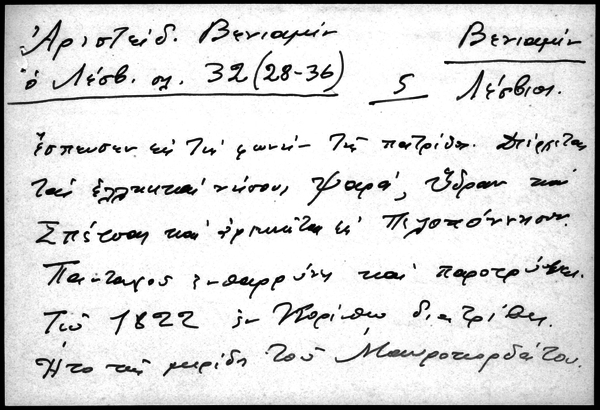 Ἀριστείδ. Βενιαμίν
ὁ Λέσβ. σλ. 32 (28-36)
5
Βενιαμίν
Λέσβιοι.
Ἔσπευσεν εἰς τὴν φωνὴν τῆς πατρίδος. Διέρχεται
τὰς ἑλληνικὰς νήσους Ψαρά, Ὕδραν καὶ
Σπέτσας καὶ ἀφικνεῖται εἰς Πελοπόννησον.
Πανταχοῦ ἐνθαρρύνει καὶ παροτρύνει.
Τῷ 1822 ἐν Κορίνθῳ διατρίβει.
Ἦτο τῆς μερίδος τοῦ Μαυροκορδάτου.